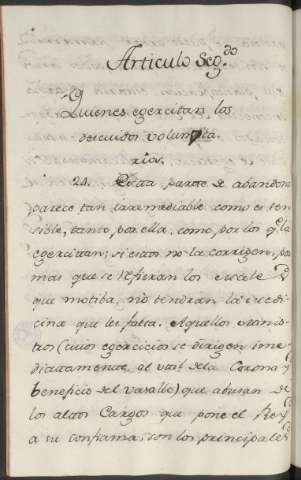 Articulo Seg.do
Quienes egercitan los
descuidos volunta-
rios.
24. Esta parte de abandono
parece tan irremediable como es sen
sible, tanto por ella, como por los q.e la
egercitan; si estos no la corrigen, por
mas que se refieran los
que motiba, no tendran la medi
cina que les falta. Aquellos minis
tros (cuios egercicios se dirigen inme
diatamente al util de la Corona y
beneficio del vasallo) que abusan de
los altos Cargos que pone el Rey
a su confianza, son los principales